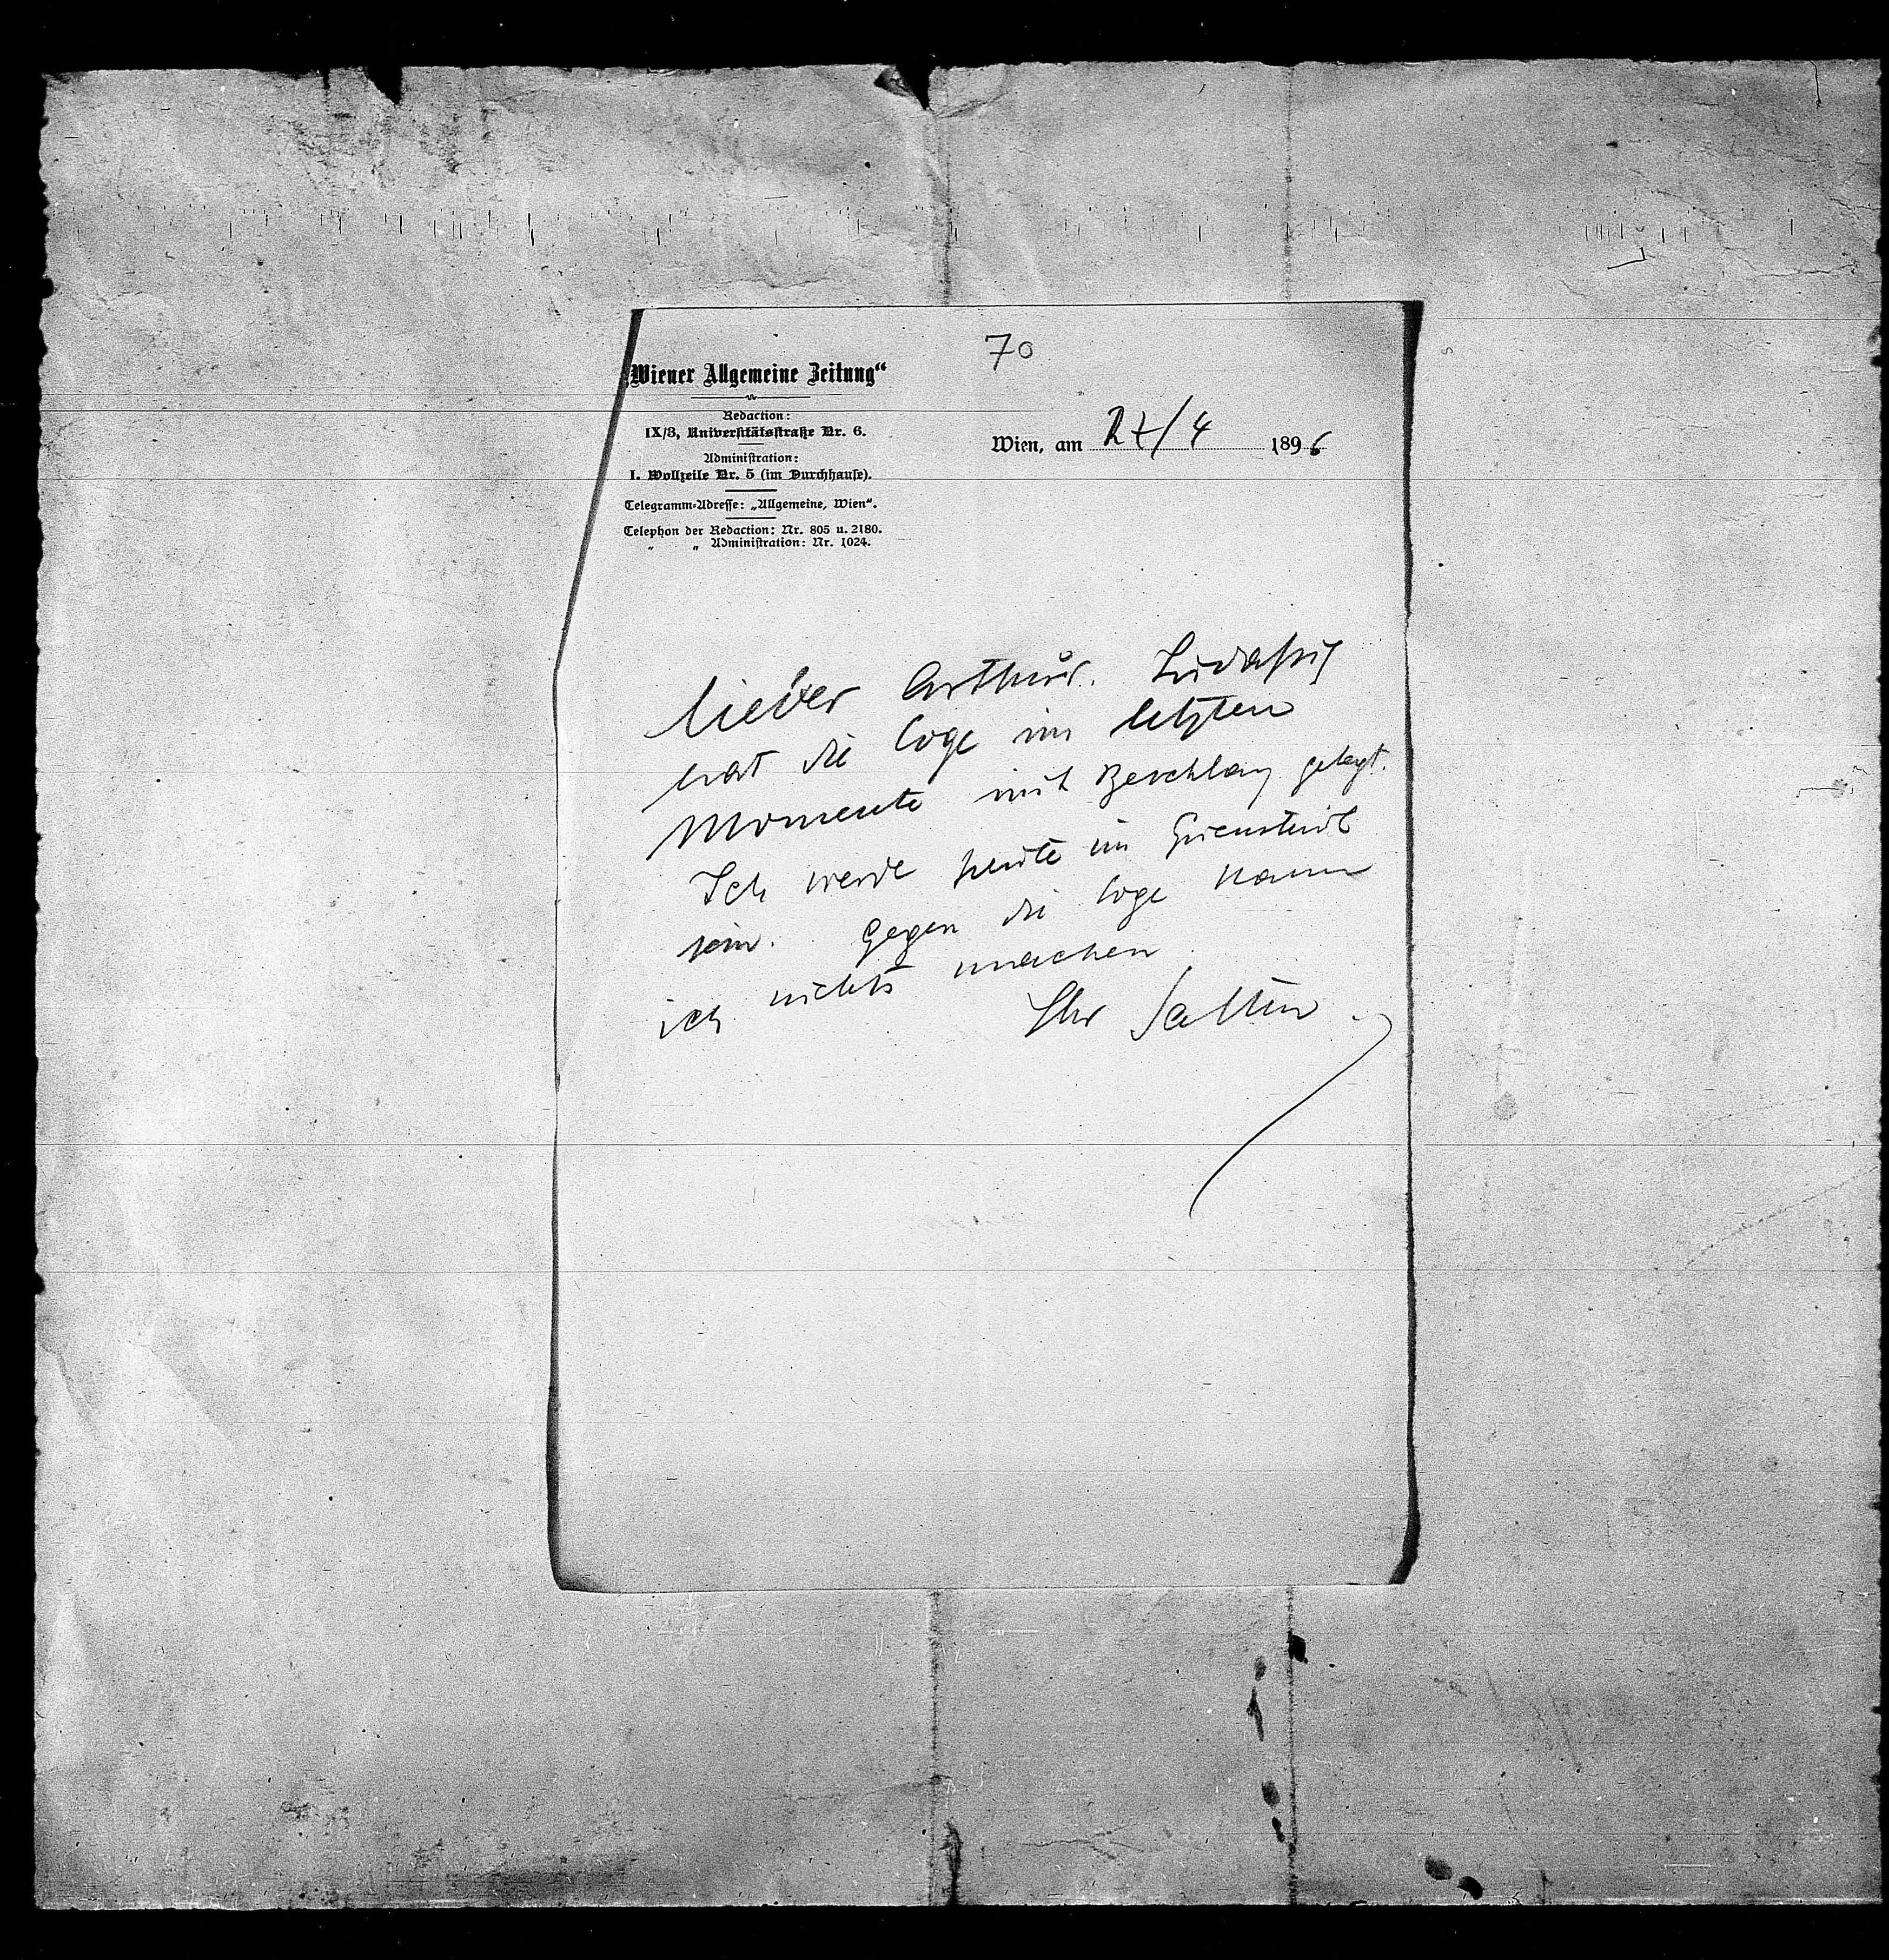 70
„Wiener Allgemeine Zeitung“
Redaction:
IX/3, Universitätsstraße Nr. 6.
Administration:
I. Wollzeile Nr. 5 (im Durchhause).
Telegramm-Adresse: „Allgemeine, Wien“.
Telephon der Redaction: Nr. 805 u. 2180.
„ „ Administration: Nr. 1024.
Wien, am 27/4 1896
lieber Arthur. Ludaßy
hat die Loge im letzten
Momente mit Beschlag gelegt.
Ich werde heute im Griensteidl
sein. Gegen die Loge kann
ich nichts machen
Ihr Salten